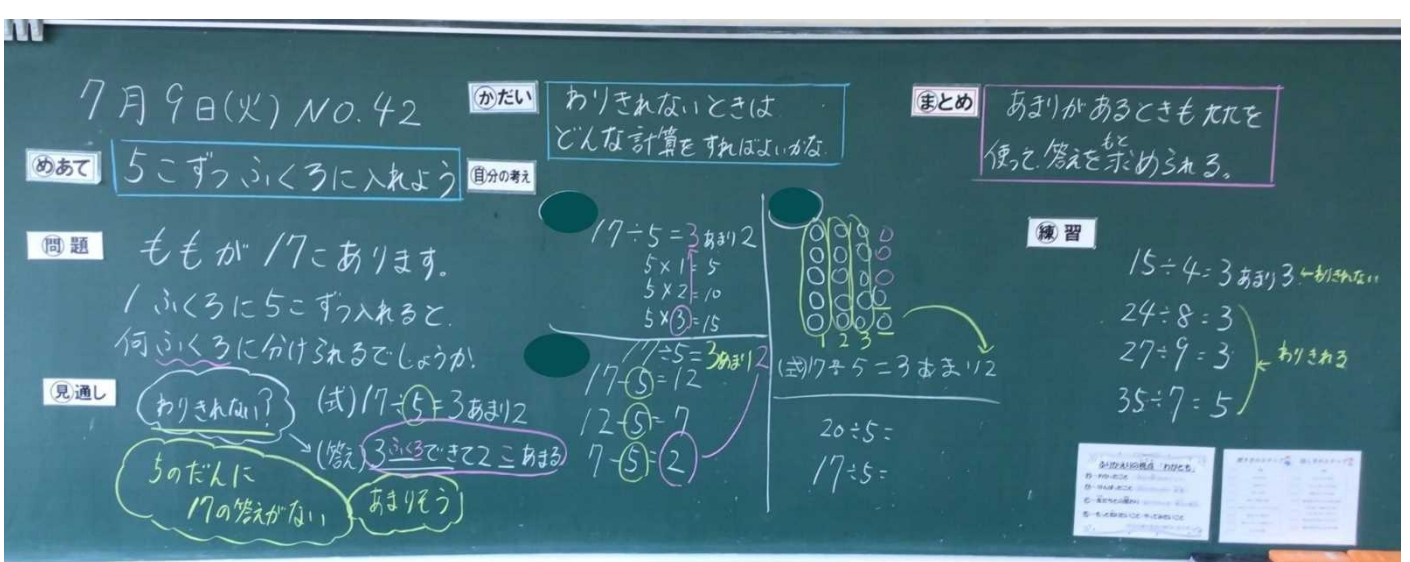 7月9日(火) NO.42
めあて
5こずつふくろに入れよう
問題
ももが17こあります。
1ふくろに5こずつ入れると、
何ふくろに分けられるでしょうか。
見通し
わりきれない?
(式)17÷5=3あまり2
(答え)3ふくろできて2こあまる
5のだんに
17の答えがない
あまりそう
かだい
わりきれないときは
どんな計算をすればよいかな
自分の考え
17÷5=3あまり2
5×1=5
5×2=10
5×3=15
17÷5=3あまり2
17-5=12
12-5=7
7-5=2
1 2 3
(式)17÷5=3あまり2
20÷5=
17÷5=
まとめ
あまりがあるときも九九を
使って答えを求められる。
もと
練習
15÷4=3あまり3 ←わりきれない
24÷8=3
27÷9=3
35÷7=5
←わりきれる
ふりかえりの視点 「わがとも」